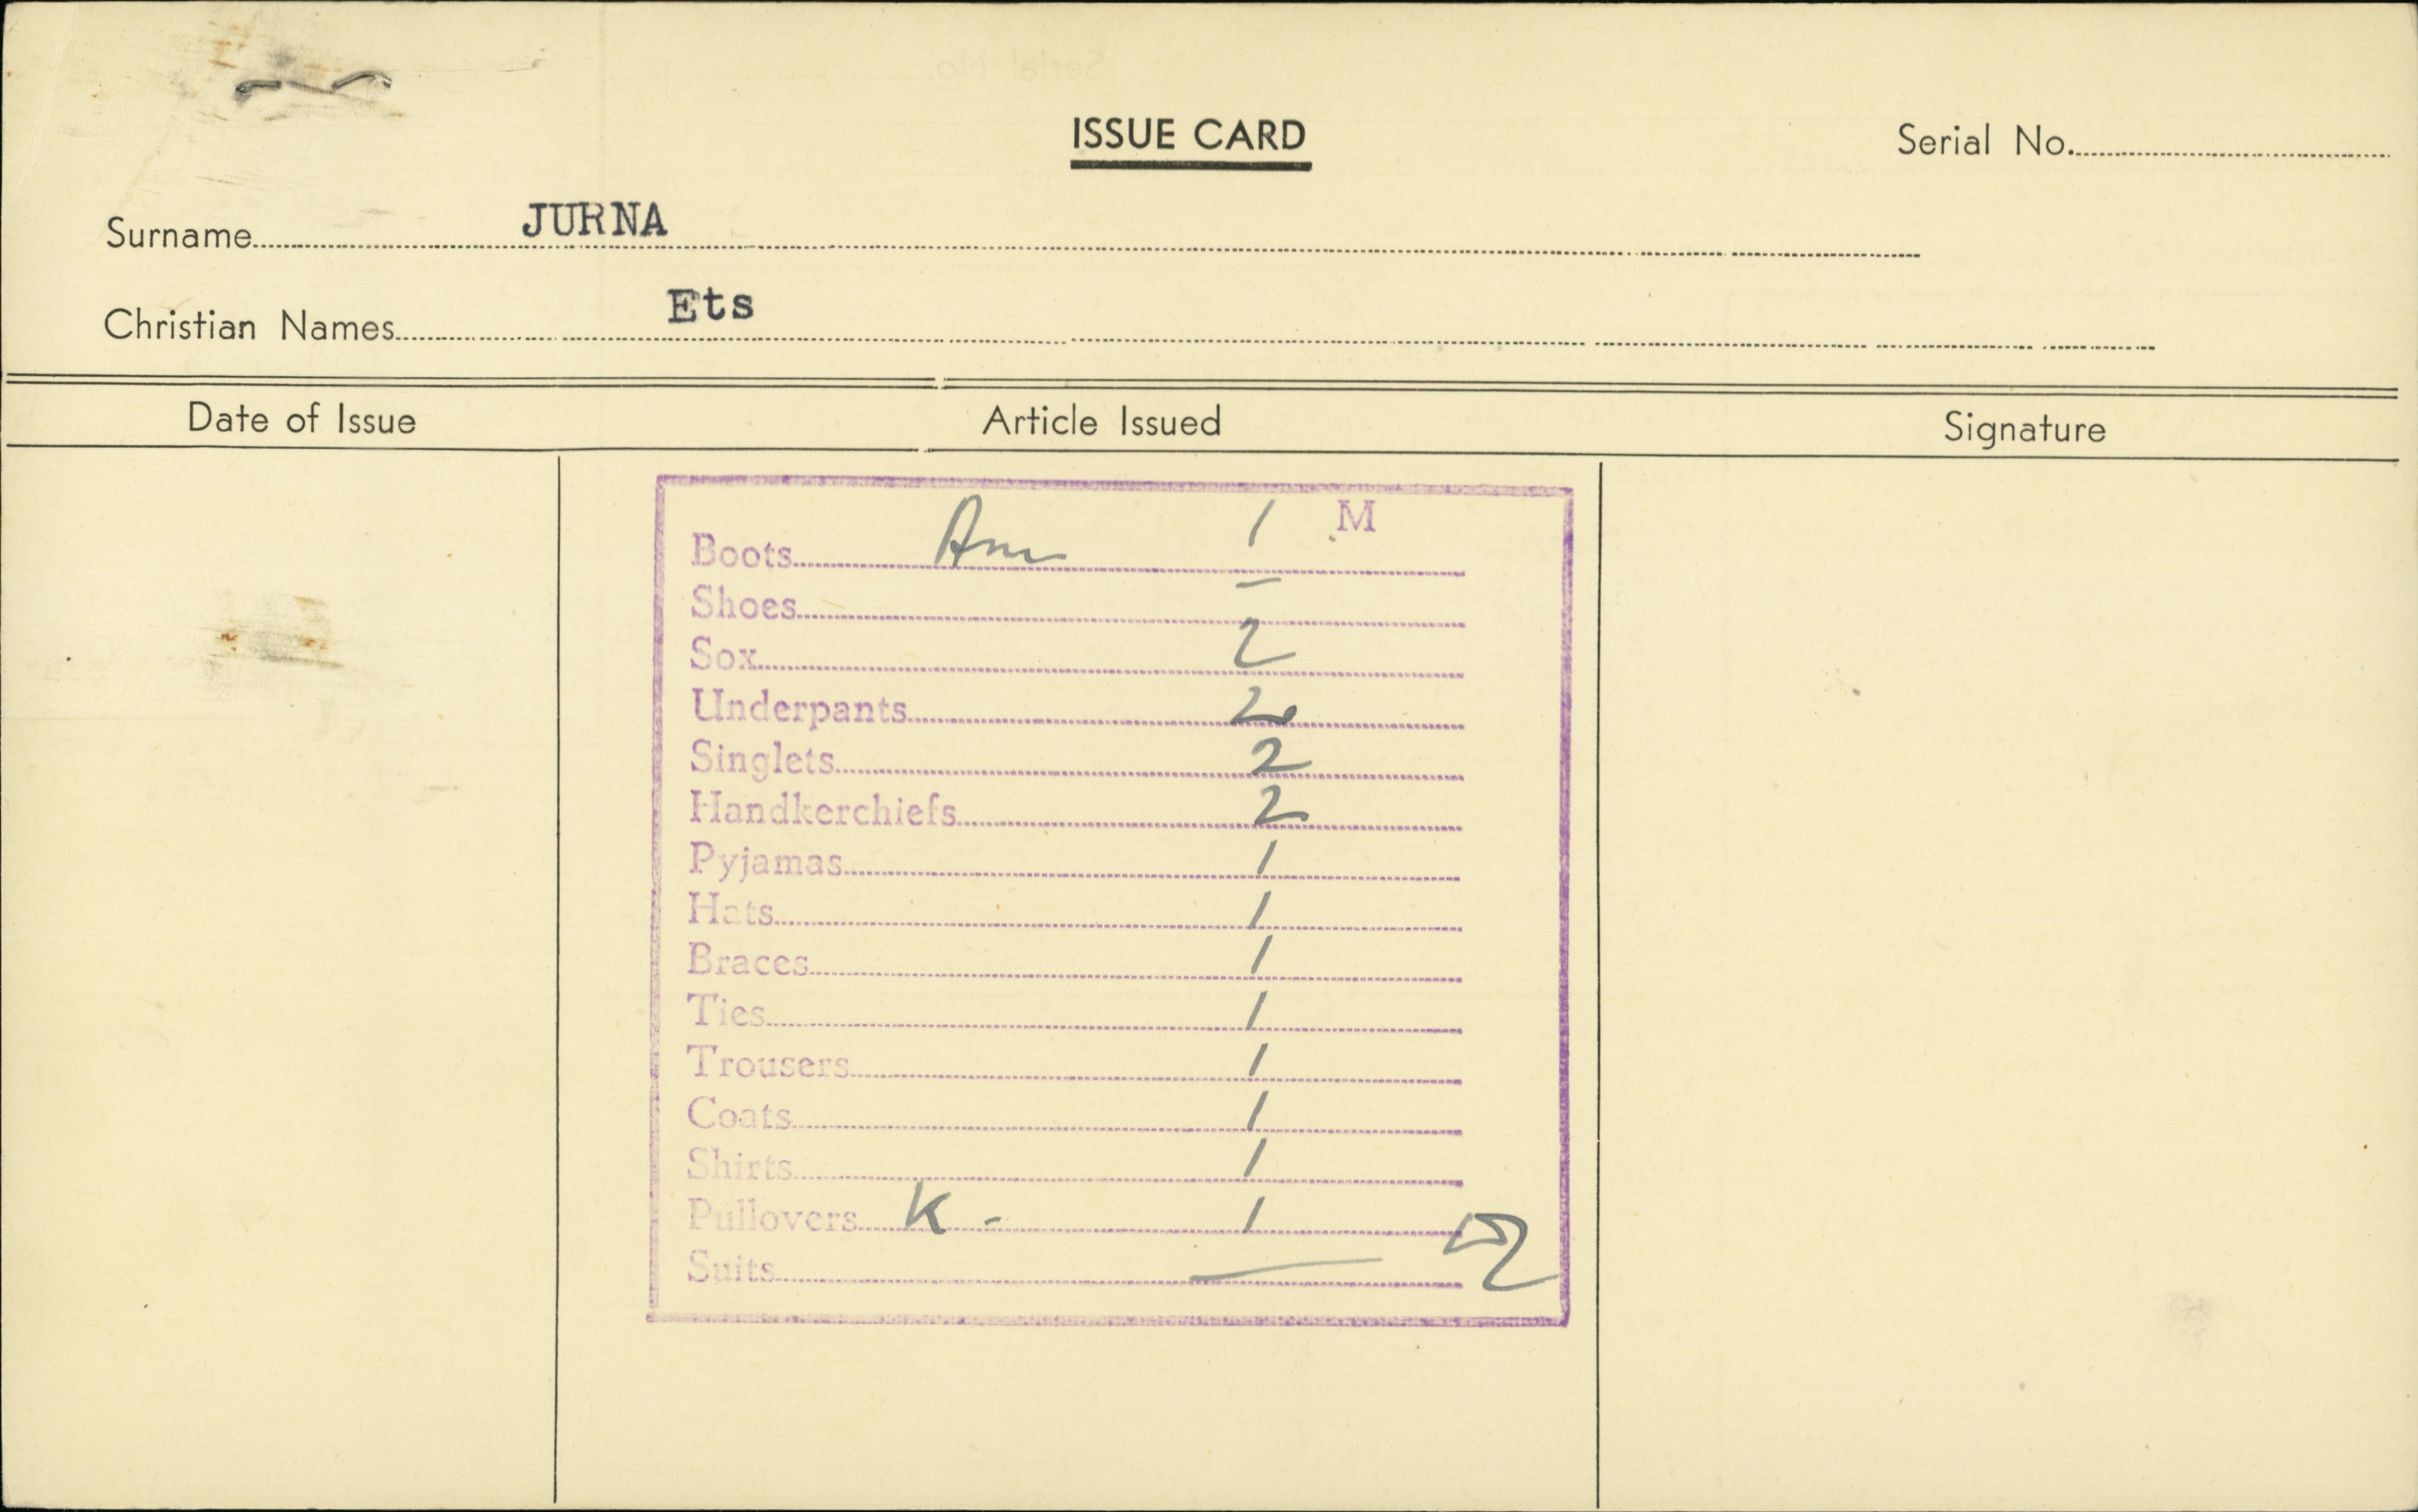 ISSUE CARD
Serial No.
Surname JURNA
Christian Names Ets
Date of Issue Article Issued Signature
M
Boots Am 1
Shoes –
Sox 2
Underpants 2
Singlets 2
Handkerchiefs 2
Pyjamas 1
Hats 1
Braces 1
Ties 1
Trousers 1
Coats 1
Shirts 1
Pullovers K - 1
Suits —